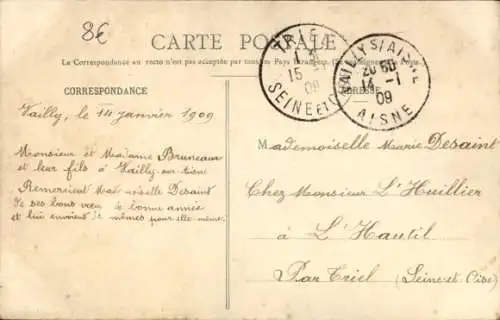 8€
CARTE POSTALE
La Correspondance au recto n'est pas acceptée par tous les Pays étrangers. (Se renseigner à la Poste)
CORRESPONDANCE
ADRESSE
TRIEL
15
09
SEINE ET O
VAILLY S/AISNE
20 50
14 -1
09
AISNE
Vailly, le 14 janvier 1909
Monsieur et Madame Bruneaux
et leur fils à Vailly-sur-Aisne
Remercient Mademoiselle Desaint
de ses bons vœux de bonne année
et lui envoient les mêmes pour elle-même.
Mademoiselle Marie Desaint
Chez Monsieur L'Huillier
à L'Hautil
Par Triel (Seine et Oise)